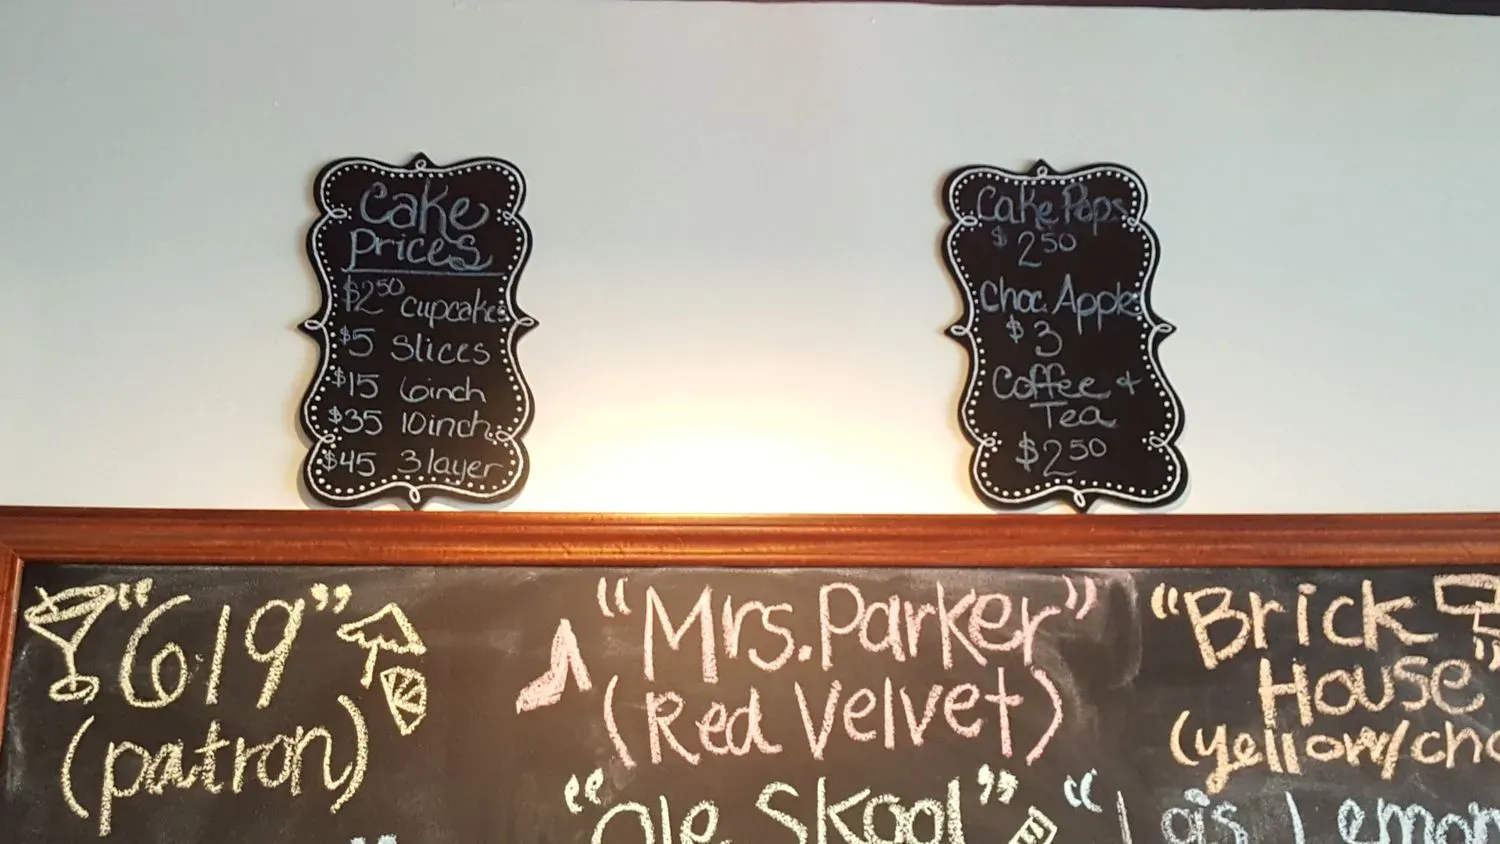 Cake
Prices
$2.50 cupcakes
$5 slices
$15 6inch
$35 10inch
$45 3 layer
Cake Pops
$2.50
Choc. Apples
$3
Coffee +
Tea
$2.50
"619"
(patron)
"Mrs. Parker"
(Red Velvet)
"Brick
House"
(yellow/cho
"Ole Skool"
"Lois Lemon